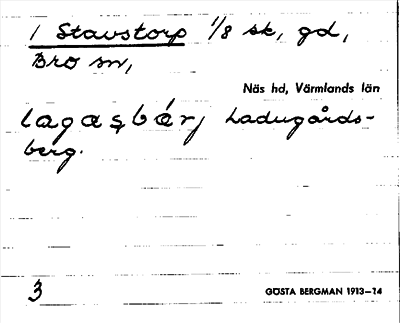 1 Stavstorp 1/8 sk, gd,
Bro sn,
Näs hd, Värmlands län
lagaşbárj Ladugårds-
berg.
3
GÖSTA BERGMAN 1913–14